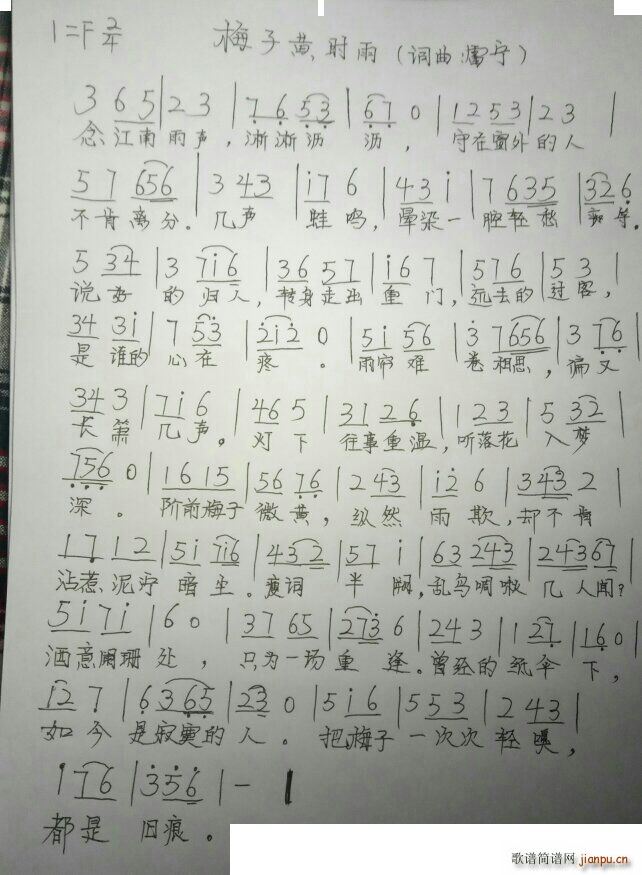 1=F 2/4 梅子黄时雨（词曲:宁）
3 6 5 | 2 3 | 7 6 5 3 | 6 7 0 | 1 2 5 3 | 2 3 |
念江南雨声，淅淅沥 沥，守在窗外的人
5 7 6 5 6 | 3 4 3 | i 7 6 | 4 3 i | 7 6 3 5 | 3 2 6
不肯离分。几声 蛙鸣，晕染一 腔轻愁
5 3 4 | 3 7 i 6 | 3 6 5 7 | i 6 7 | 5 7 6 | 5 3 |
说好 的 归人，转身走出重门，远去的过客，
3 4 3 i | 7 5 3 | 2 i 2 0 | 5 i 5 6 | 3 7 6 5 6 | 3 7 6 |
是谁的心在 疼。雨帘难 卷相思，偏又
3 4 3 | 7 i 6 | 4 6 5 | 3 1 2 6 | 1 2 3 | 5 3 2 |
长箫 几声。灯下 往事重温，听落花 入梦
7 5 6 0 | 1 6 1 5 | 5 6 7 6 | 2 4 3 | i 2 6 | 3 4 3 2 |
深。阶前梅子微黄，纵然 雨欺，却不肯
1 7 1 2 | 5 i 7 i 6 | 4 3 2 | 5 7 i | 6 3 2 4 3 | 2 4 3 6 7 |
沾惹泥泞 暗尘。旧词 半阕，乱鸟啁啾几人闻?
5 i 7 i | 6 0 | 3 7 6 5 | 2 7 3 6 | 2 4 3 | 1 2 7 | 1 6 0 |
酒意阑珊处，只为一场重逢。曾经的纸伞下，
i 2 7 | 6 3 6 5 | 2 3 0 | 5 i 6 | 5 5 3 | 2 4 3 |
如今是寂寞的人。把梅子一次次轻嗅，
1 7 6 | 3 5 6 | - |
都是 旧痕。
歌谱简谱网
jianpu.cn